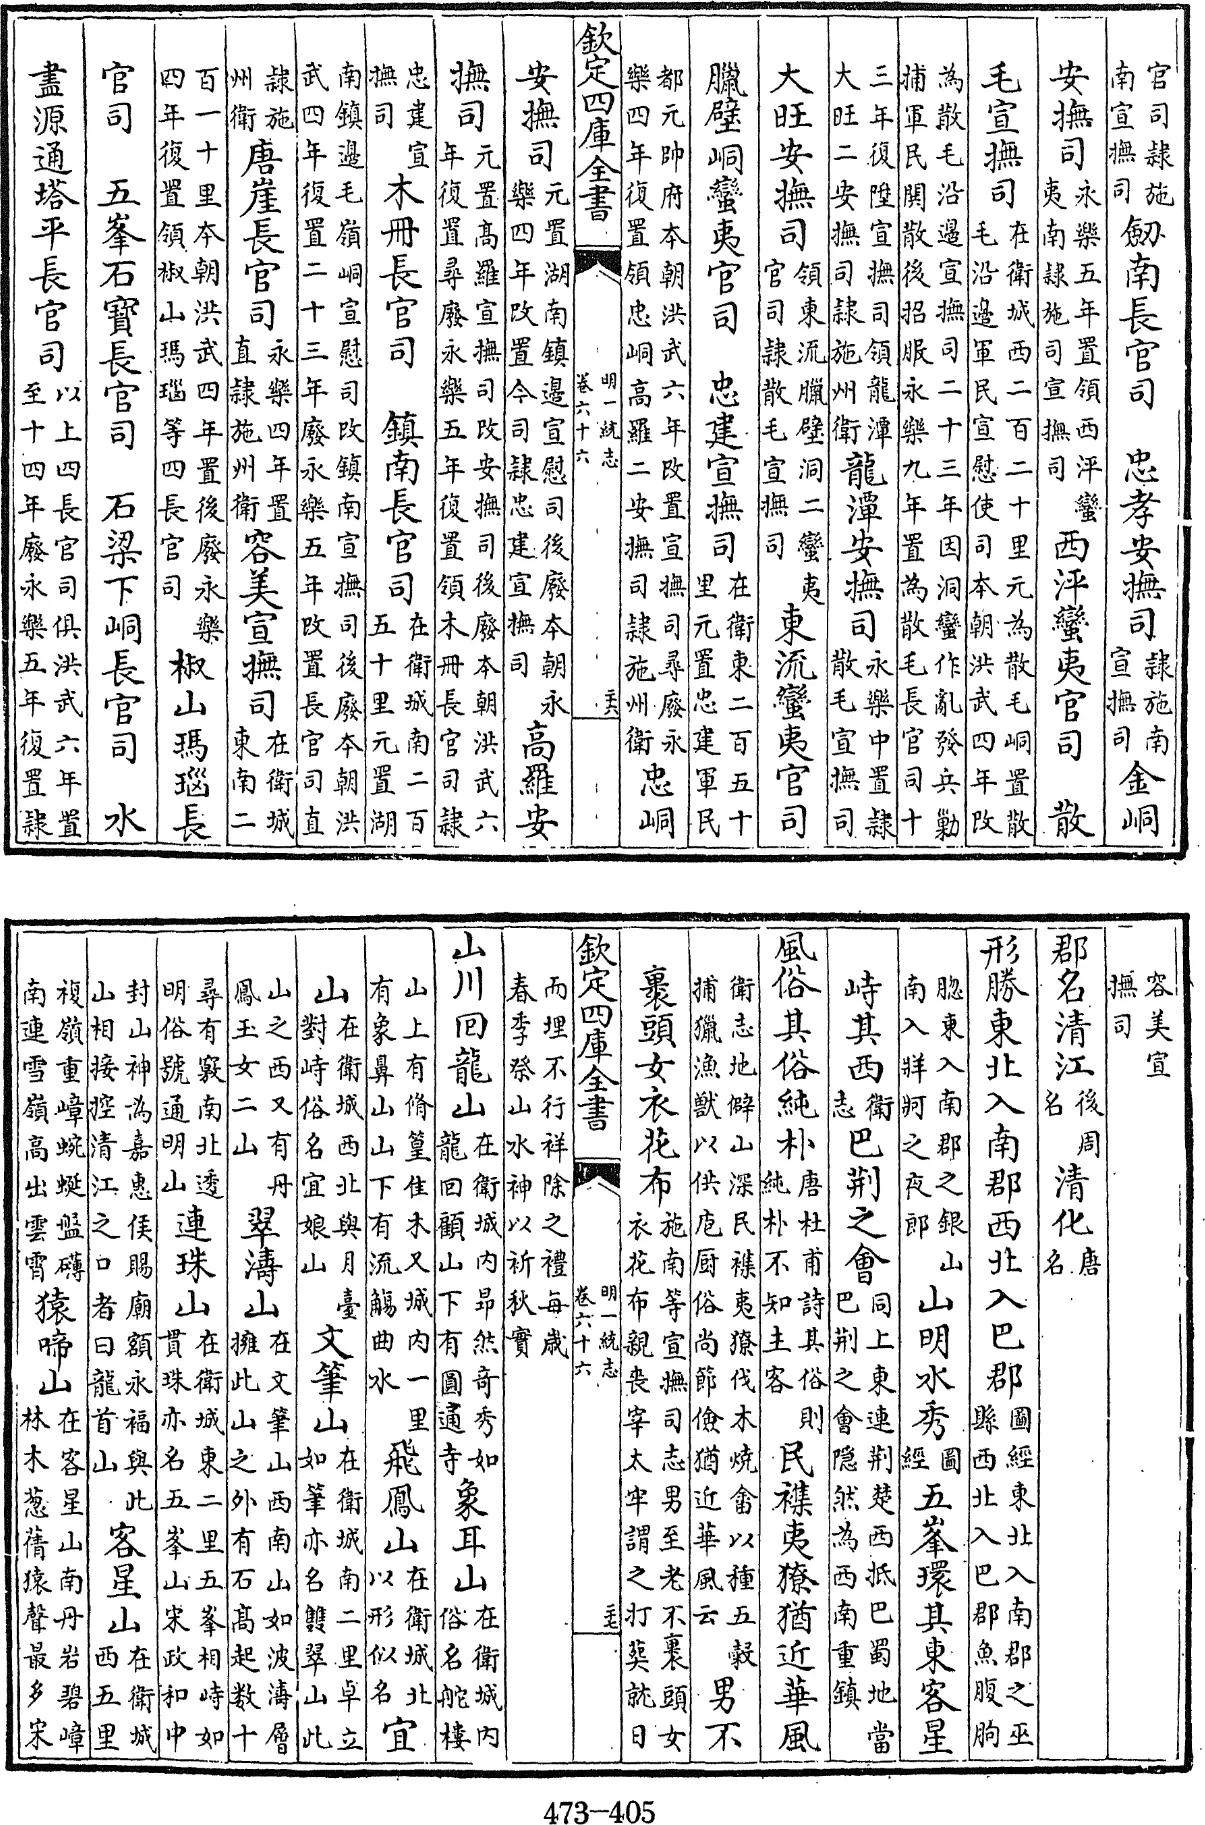 官司隷施南宣撫司劒南長官司 忠孝安撫司隷施南宣撫司金峒
安撫司永樂五年置領西泙蠻夷南隷施司宣撫司西泙蠻夷官司 散
毛宣撫司在衛城西二百二十里元為散毛峒置散毛沿邊軍民宣慰使司本朝洪武四年改
為散毛沿邊宣撫司二十三年因洞蠻作亂發兵勦捕軍民関散後招服永樂九年置為散毛長官司十
三年復陞宣撫司領龍潭大旺二安撫司隷施州衛龍潭安撫司永樂中置隷散毛宣撫司
大旺安撫司領東流臘壁洞二蠻夷官司隷散毛宣撫司東流蠻夷官司
臘壁峒蠻夷官司 忠建宣撫司在衛東二百五十里元置忠建軍民
都元帥府本朝洪武六年改置宣撫司尋廢永樂四年復置領忠峒高羅二安撫司隷施州衛忠峒
欽定四庫全書 明一統志卷六十六 二十六
安撫司元置湖南鎮邊宣慰司後廢本朝永樂四年改置今司隷忠建宣撫司高羅安
撫司元置高羅宣撫司改安撫司後廢本朝洪武六年復置尋廢永樂五年復置領木冊長官司隷
忠建宣撫司木冊長官司 鎮南長官司在衛城南二百五十里元置湖
南鎮邊毛嶺峒宣慰司改鎮南宣撫司後廢本朝洪武四年復置二十三年廢永樂五年改置長官司直
隷施州衛唐崖長官司永樂四年置直隷施州衛容美宣撫司在衛城東南二
百一十里本朝洪武四年置後廢永樂四年復置領椒山瑪瑙等四長官司椒山瑪瑙長
官司 五峯石寶長官司 石梁下峒長官司 水
盡源通塔平長官司以上四長官司俱洪武六年置至十四年廢永樂五年復置隷
容美宣撫司
郡名清江後周名清化唐名
形勝東北入南郡西北入巴郡圖經東北入南郡之巫縣西北入巴郡魚腹朐
䏰東入南郡之銀山南入牂牁之夜郎山明水秀圖經五峯環其東客星
峙其西衛志巴荆之會同上東連荆楚西抵巴蜀地當巴荆之會隠然為西南重鎮
風俗其俗純朴唐杜甫詩其俗則純朴不知主客民襍夷獠猶近華風
衛志地僻山深民襍夷獠伐木燒畬以種五穀捕獵漁獸以供庖厨俗尚節儉猶近華風云男不
裹頭女衣花布施南等宣撫司志男至老不裹頭女衣花布親喪宰太牢謂之打葬就日
欽定四庫全書 明一統志卷六十六 二十七
而埋不行祥除之禮每歲春季祭山水神以祈秋實
山川回龍山在衛城内昂然竒秀如龍回顧山下有圓通寺象耳山在衛城内俗名舵樓
山上有脩篁佳木又城内一里有象鼻山山下有流觴曲水飛鳳山在衛城北以形似名宜
山在衛城西北與月臺山對峙俗名宜娘山文筆山在衛城南二里卓立如筆亦名雙翠山此
山之西又有丹鳳玉女二山翠濤山在文筆山西南山如波濤層擁此山之外有石高起数十
尋有竅南北透明俗號通明山連珠山在衛城東二里五峯相峙如貫珠亦名五峯山宋政和中
封山神為嘉惠侯賜廟額永福與此山相接控清江之口者曰龍首山客星山在衛城西五里
複嶺重嶂蜿蜒盤礴南連雪嶺高出雲霄猿啼山在客星山南丹岩碧嶂林木葱蒨猿聲最多宋
473-405